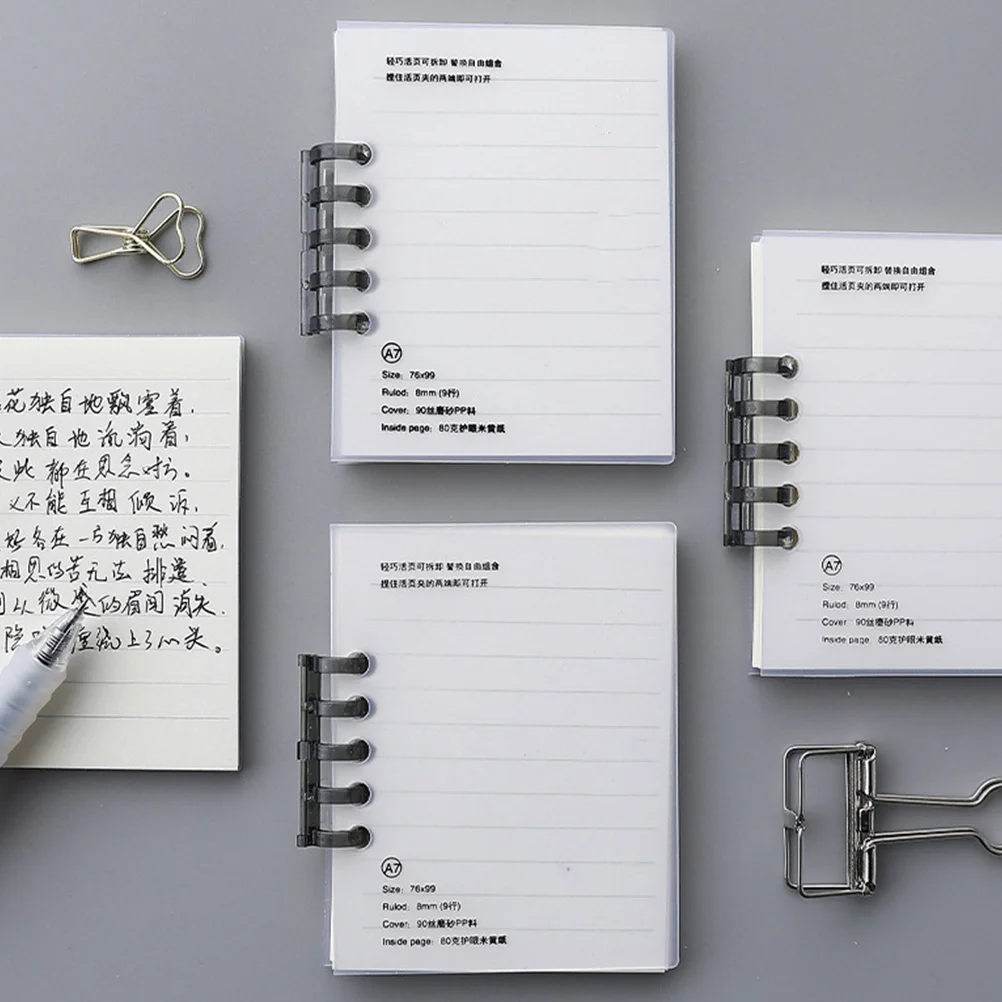 轻巧活页可拆卸 替换自由组合
捏住活页夹的两端即可打开
A7
Size: 76x99
Rulod: 8mm (9行)
Cover: 90丝磨砂PP料
Inside page: 80克护眼米黄纸
轻巧活页可拆卸 替换自由组合
捏住活页夹的两端即可打开
A7
Size: 76x99
Rulod: 8mm (9行)
Cover: 90丝磨砂PP料
Inside page: 80克护眼米黄纸
花独自地飘零着,
独自地流淌着,
此都在思念对方。
又不能互相倾诉,
好各在一方独自愁闷着,
相思的苦无法排遣
从微蹙的眉间消失
隐 上了心头。
轻巧活页可拆卸 替换自由组合
捏住活页夹的两端即可打开
A7
Size: 76x99
Rulod: 8mm (9行)
Cover: 90丝磨砂PP料
Inside page: 80克护眼米黄纸